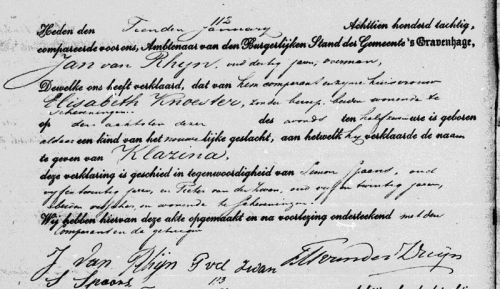 112
Heden den Tienden January Achttien honderd tachtig,
compareerde voor ons, Ambtenaar van den Burgerlijken Stand der Gemeente 's Gravenhage,
Jan van Rhijn, oud dertig jaren, zeeman,
Dewelke ons heeft verklaard, dat van hem comparant en zijne huisvrouw
Elisabeth Knoester, zonder beroep, beiden wonende te
Scheveningen
op den achtsten dezer des avonds ten half ure is geboren
aldaar een kind van het vrouwelijke geslacht, aan hetwelk hij verklaarde de naam
te geven van Klazina,
deze verklaring is geschied in tegenwoordigheid van Simon Spaans, oud
vijf en twintig jaren, en Pieter van der Zwan, oud vijf en twintig jaren,
beiden en wonende te Scheveningen.
Wij hebben hiervan deze akte opgemaakt en na voorlezing onderteekend met den
Comparant en de getuigen
J van Rhijn P vd Zwan
S Spaans
113